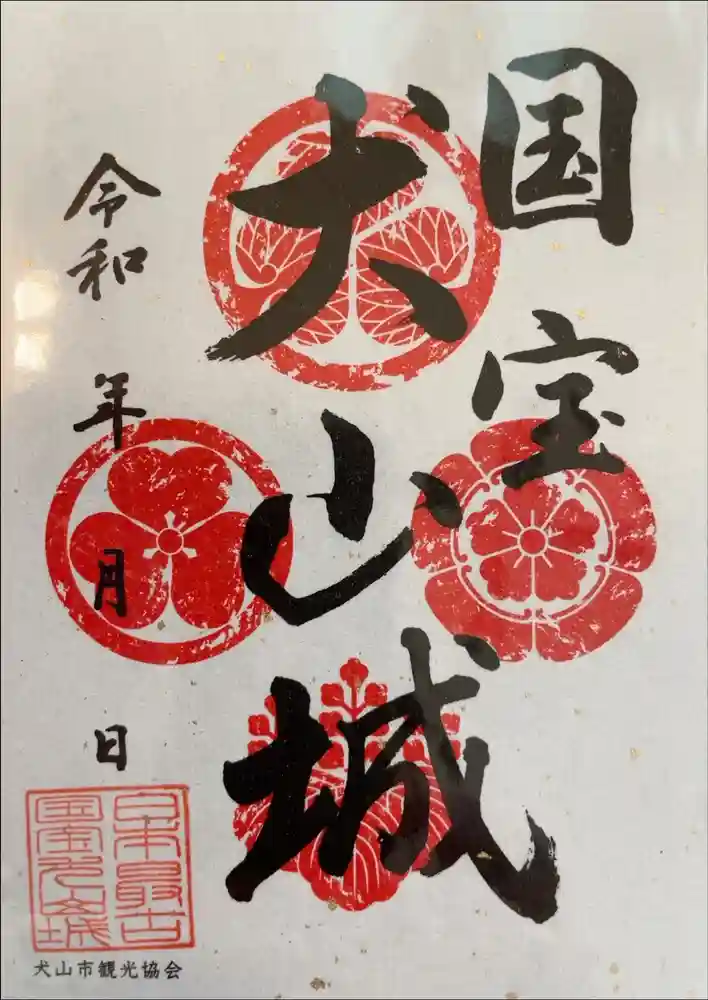 国宝
犬山城
令和 年 月 日
日本最古
国宝犬山城
犬山市観光協会